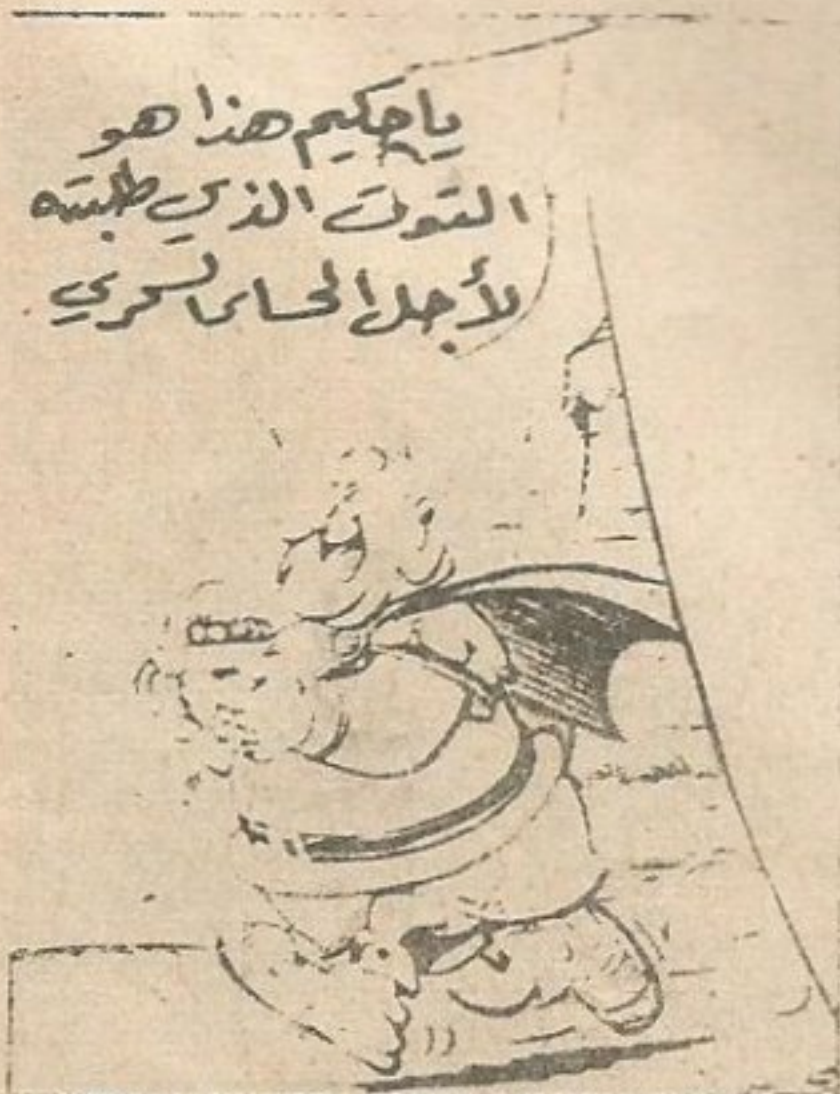 يا حكيم هذا هو
التوت الذي طلبته
لأجل الحساء السحري